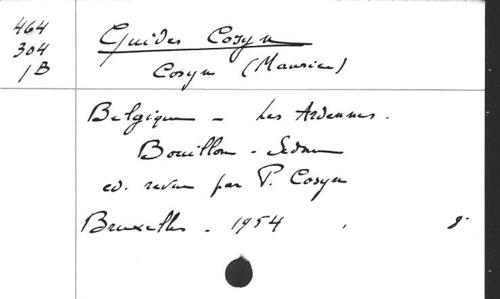 464
304
/B
Guides Cosyn
Cosyn (Maurice)
Belgique - Les Ardennes.
Bouillon - Sedan
ed. revue par P. Cosyn
Bruxelles - 1954